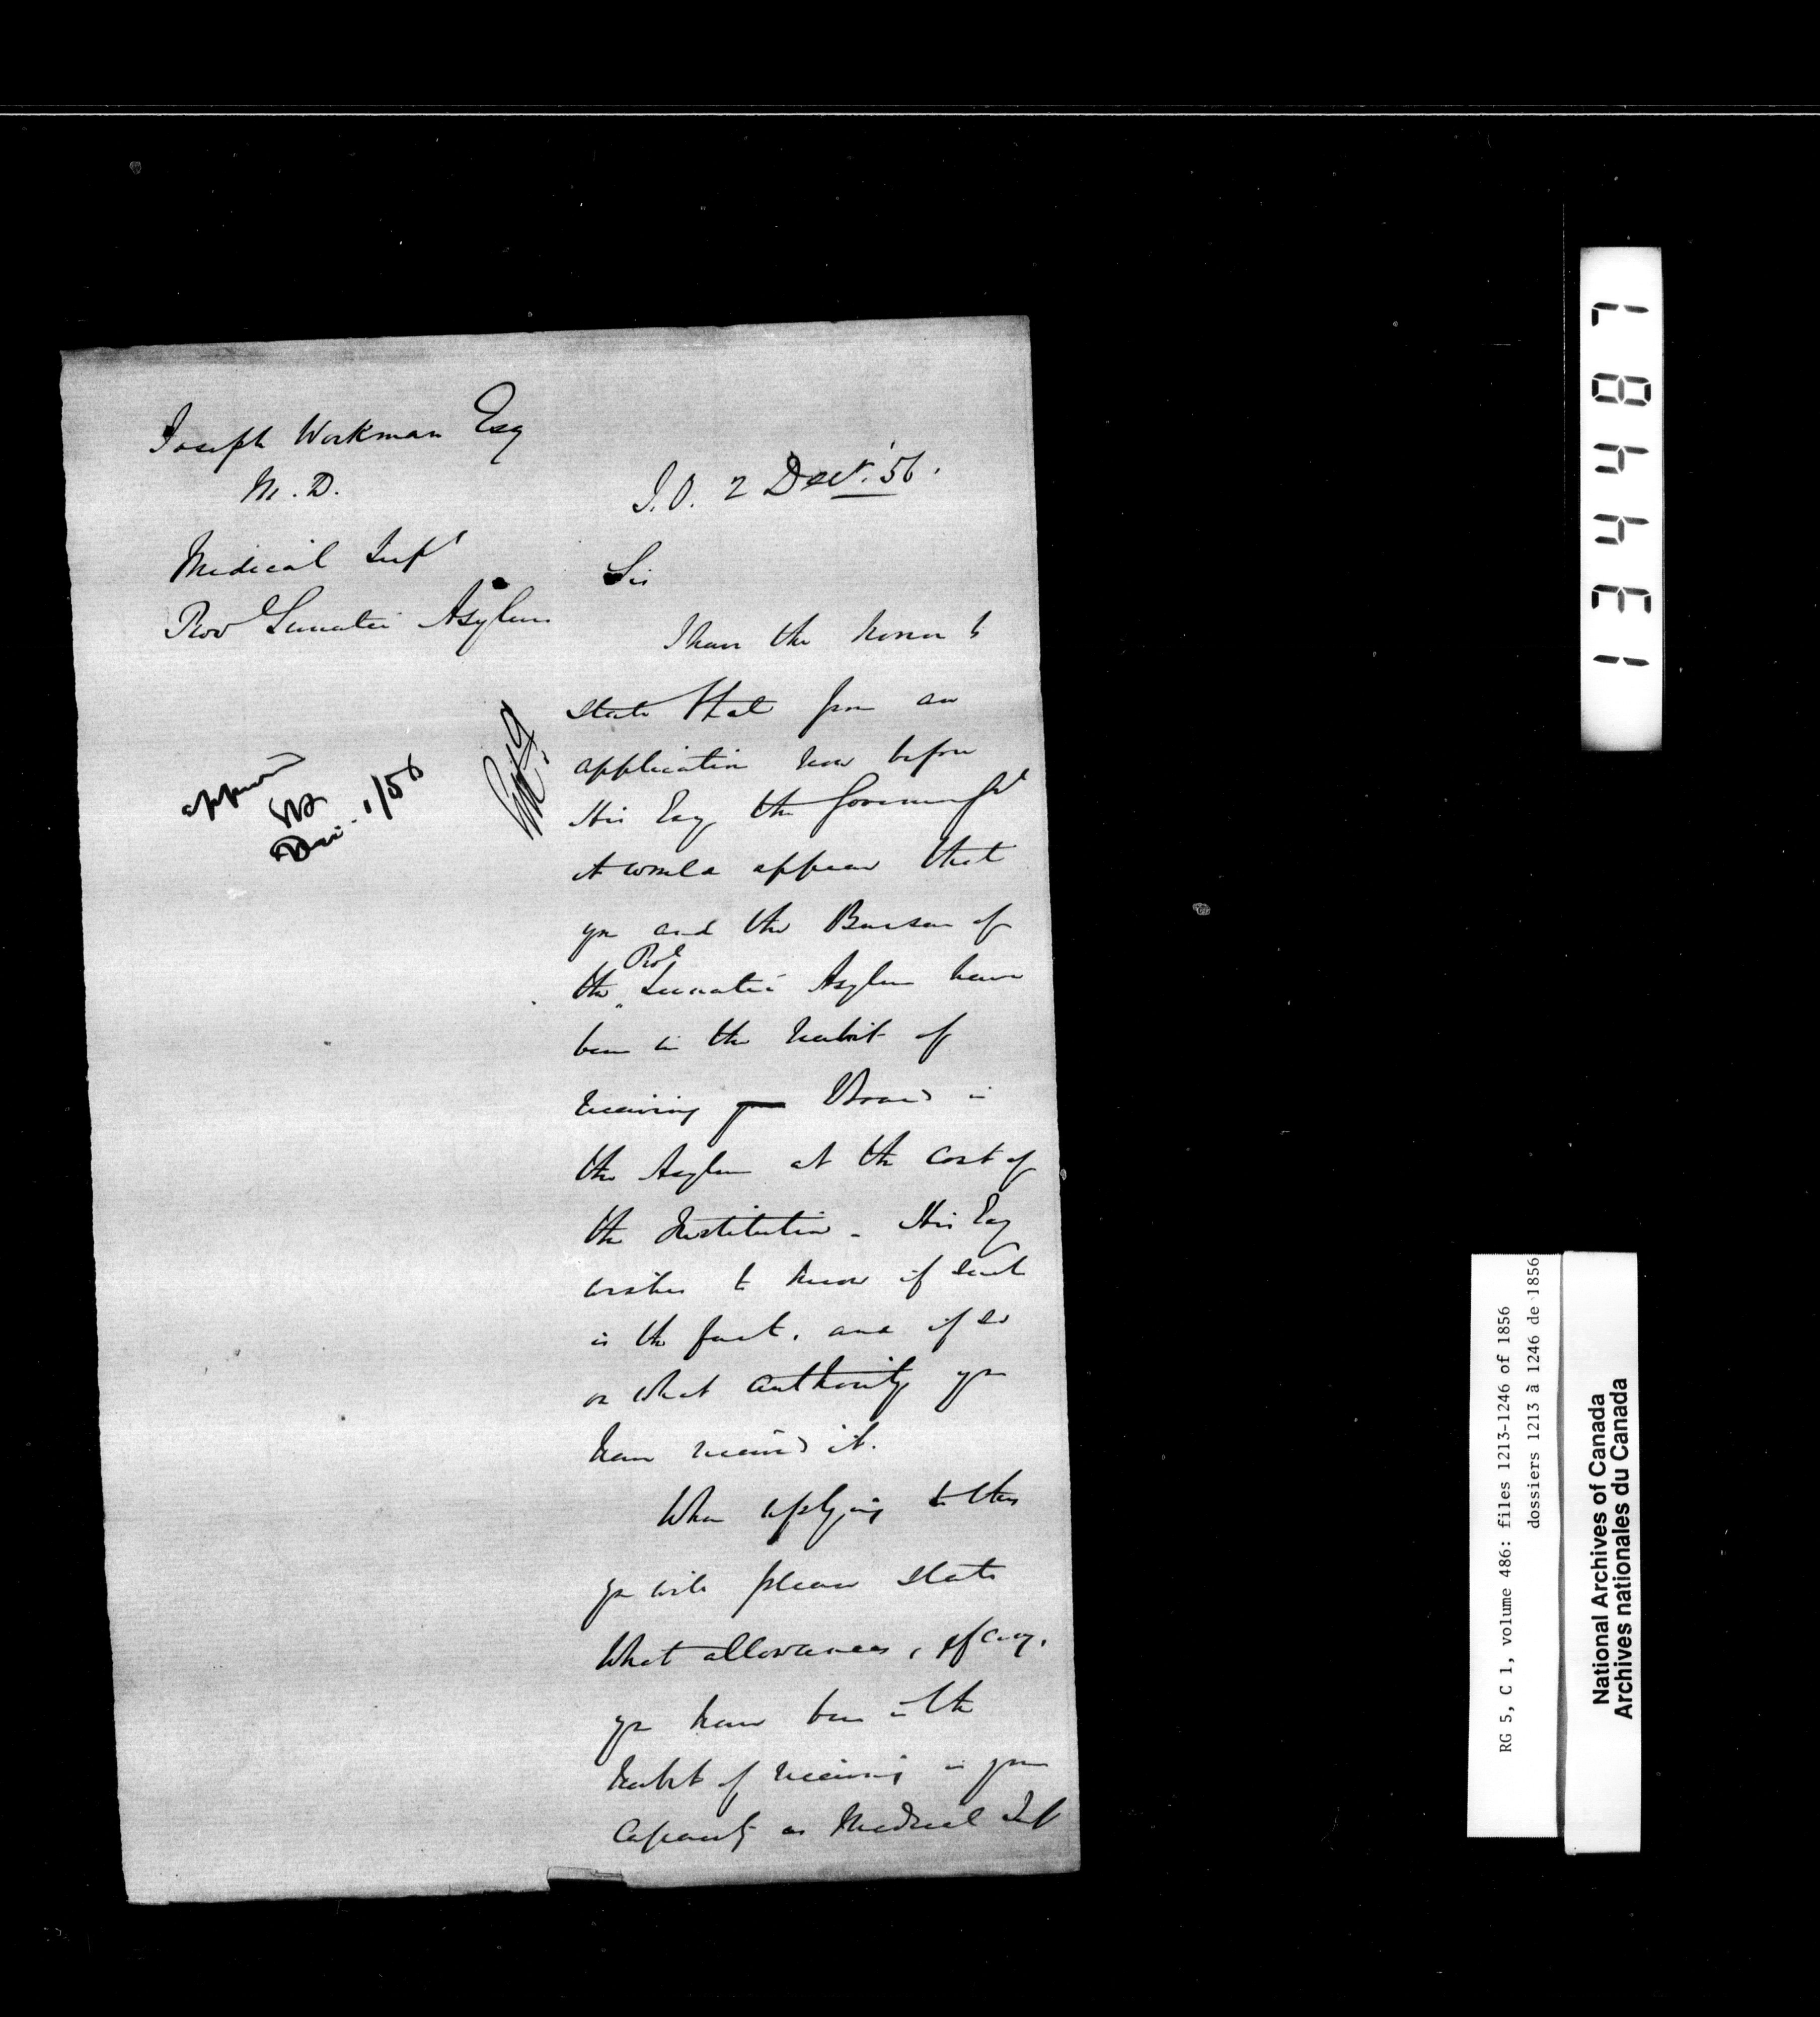 Joseph Workman Esq
M. D.
Medical Supt
Provl Lunatic Asylum
S. O. 2 Decr. '56.
Sir
I have the honor to
state that from an
application now before
His Exy the Governor Genl
it would appear that
you and the Bursar of
the Provl Lunatic Asylum have
been in the habit of
receiving your Board in
the Asylum at the cost of
the Institution - His Exy
wishes to know if such
is the fact, and if so
on what authority you
have received it.
When replying to this
you will please state
what allowances, if any,
you have been in the
habit of receiving in your
capacity as Medical Sup
approved
Dec. 1/56
134487
RG 5, C 1, volume 486: files 1213-1246 of 1856
dossiers 1213 à 1246 de 1856
National Archives of Canada
Archives nationales du Canada